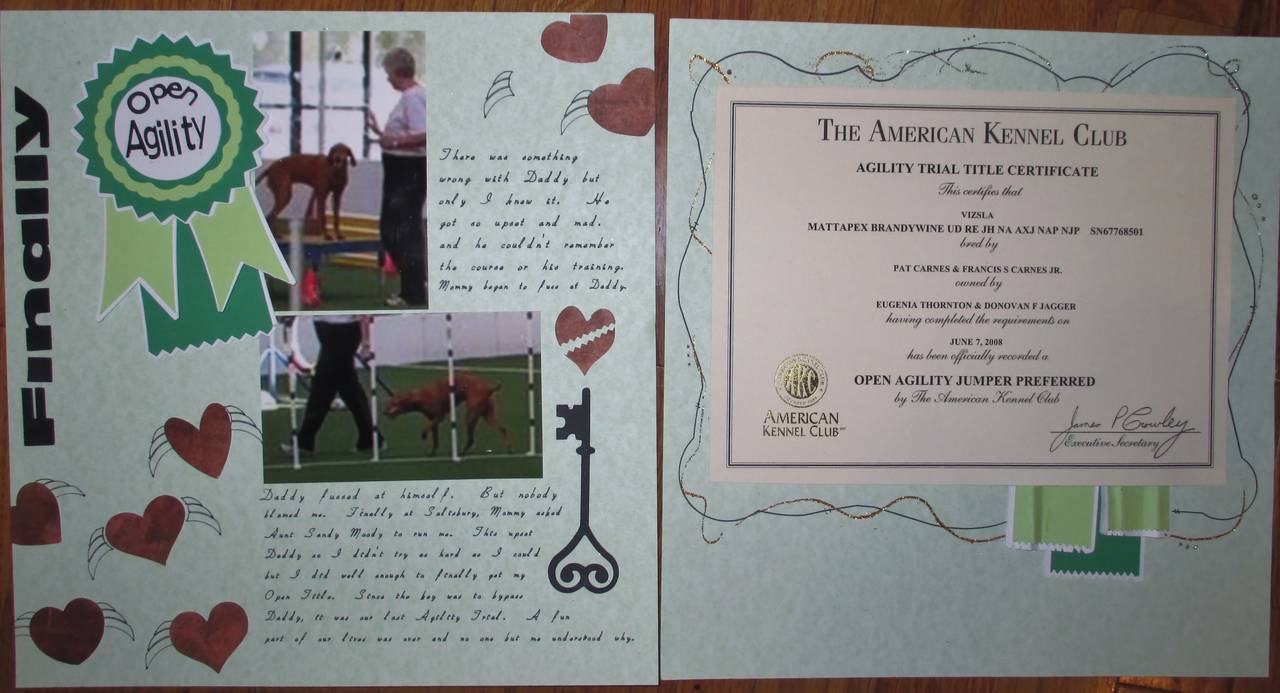 Finally
Open
Agility
There was something
wrong with Daddy but
only I knew it. He
got so upset and mad.
and he couldn't remember
the course or his training.
Mommy began to fuss at Daddy.
Daddy fussed at himself. But nobody
blamed me. Finally at Salisbury, Mommy asked
Aunt Sandy Moody to run me. This upset
Daddy so I didn't try as hard as I could
but I did well enough to finally get my
Open Title. Since the key was to bypass
Daddy, it was our last Agility Trial. A fun
part of our lives was over and no one but me understood why.
THE AMERICAN KENNEL CLUB
AGILITY TRIAL TITLE CERTIFICATE
This certifies that
VIZSLA
MATTAPEX BRANDYWINE UD RE JH NA AXJ NAP NJP SN67768501
bred by
PAT CARNES & FRANCIS S CARNES JR.
owned by
EUGENIA THORNTON & DONOVAN F JAGGER
having completed the requirements on
JUNE 7, 2008
has been officially recorded a
OPEN AGILITY JUMPER PREFERRED
by The American Kennel Club
AMERICAN
KENNEL CLUB
James P Crowley
Executive Secretary